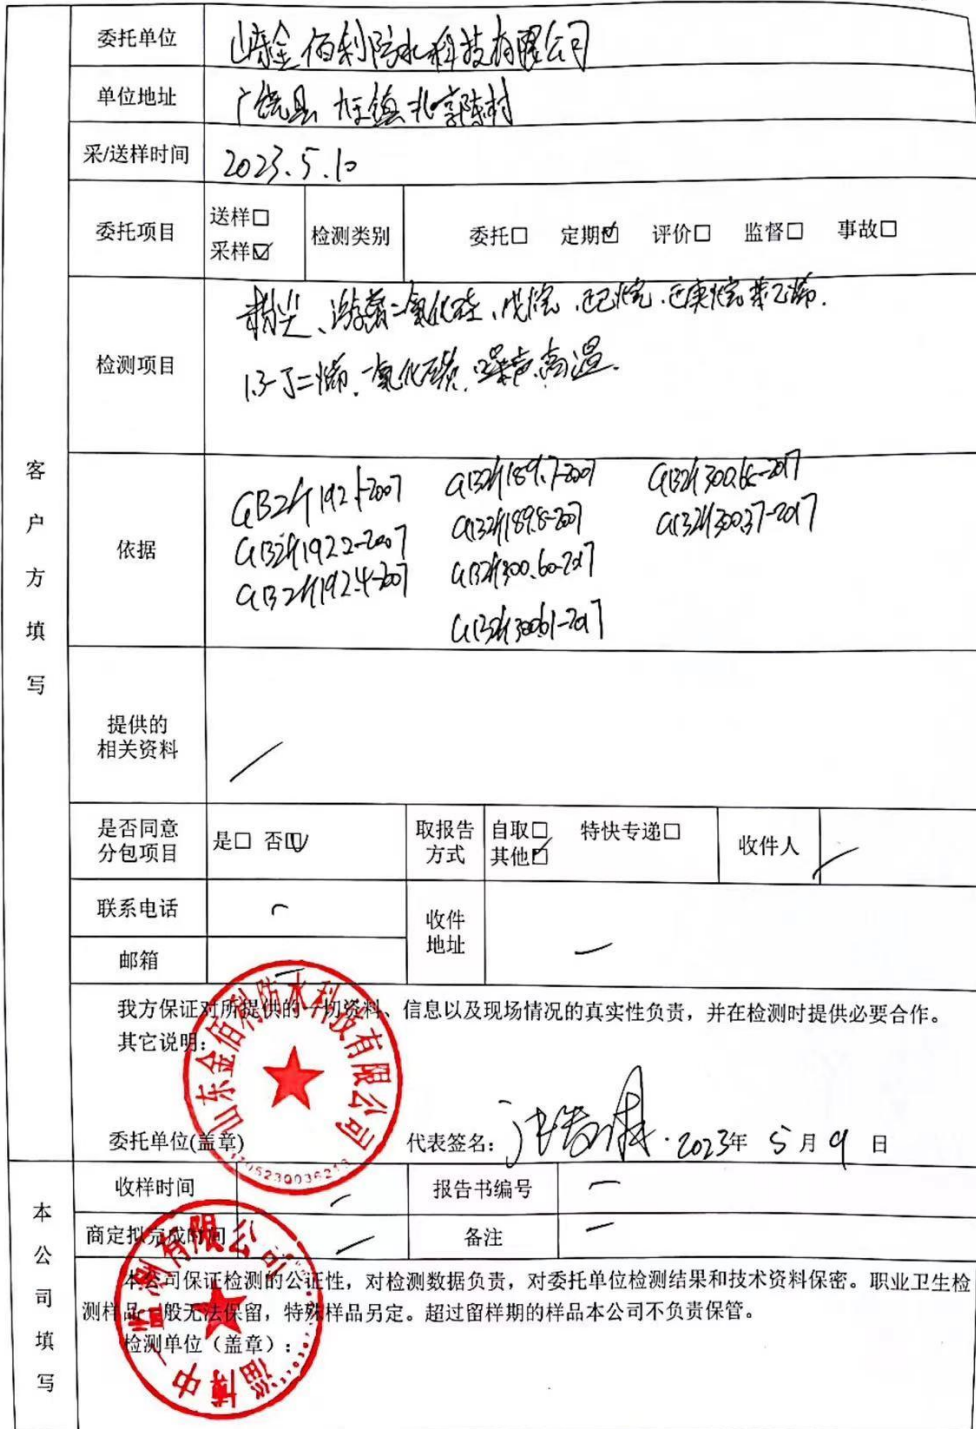 委托单位 山东金佰利防水科技有限公司
单位地址 广饶县 大王镇 北郭陈村
采/送样时间 2023.5.10
委托项目 送样□ 采样☑ 检测类别 委托□ 定期☑ 评价□ 监督□ 事故□
检测项目 粉尘、游离二氧化硅、戊烷、正己烷、正庚烷、苯乙烯、
1.3-丁二烯、一氧化碳、噪声、高温.
客户方填写
依据
GBZ/T192.1-2007 GBZ/T189.7-2007
GBZ/T192.2-2007 GBZ/T189.8-2007 GBZ/T300.37-2017
GBZ/T192.4-2007 GBZ/T300.60-2017
GBZ/T300.61-2017
提供的
相关资料
是否同意
分包项目 是□ 否☑
取报告
方式
自取□ 特快专递□
其他☑
收件人
联系电话
收件
地址
邮箱
我方保证对所提供的一切资料、信息以及现场情况的真实性负责，并在检测时提供必要合作。
其它说明：
山东金佰利防水科技有限公司
委托单位(盖章) 代表签名： 2023年 5 月 9 日
本公司填写
收样时间 报告书编号
商定拟完成时间 备注
本公司保证检测的公证性，对检测数据负责，对委托单位检测结果和技术资料保密。职业卫生检
测样品一般无法保留，特殊样品另定。超过留样期的样品本公司不负责保管。
检测单位（盖章）：